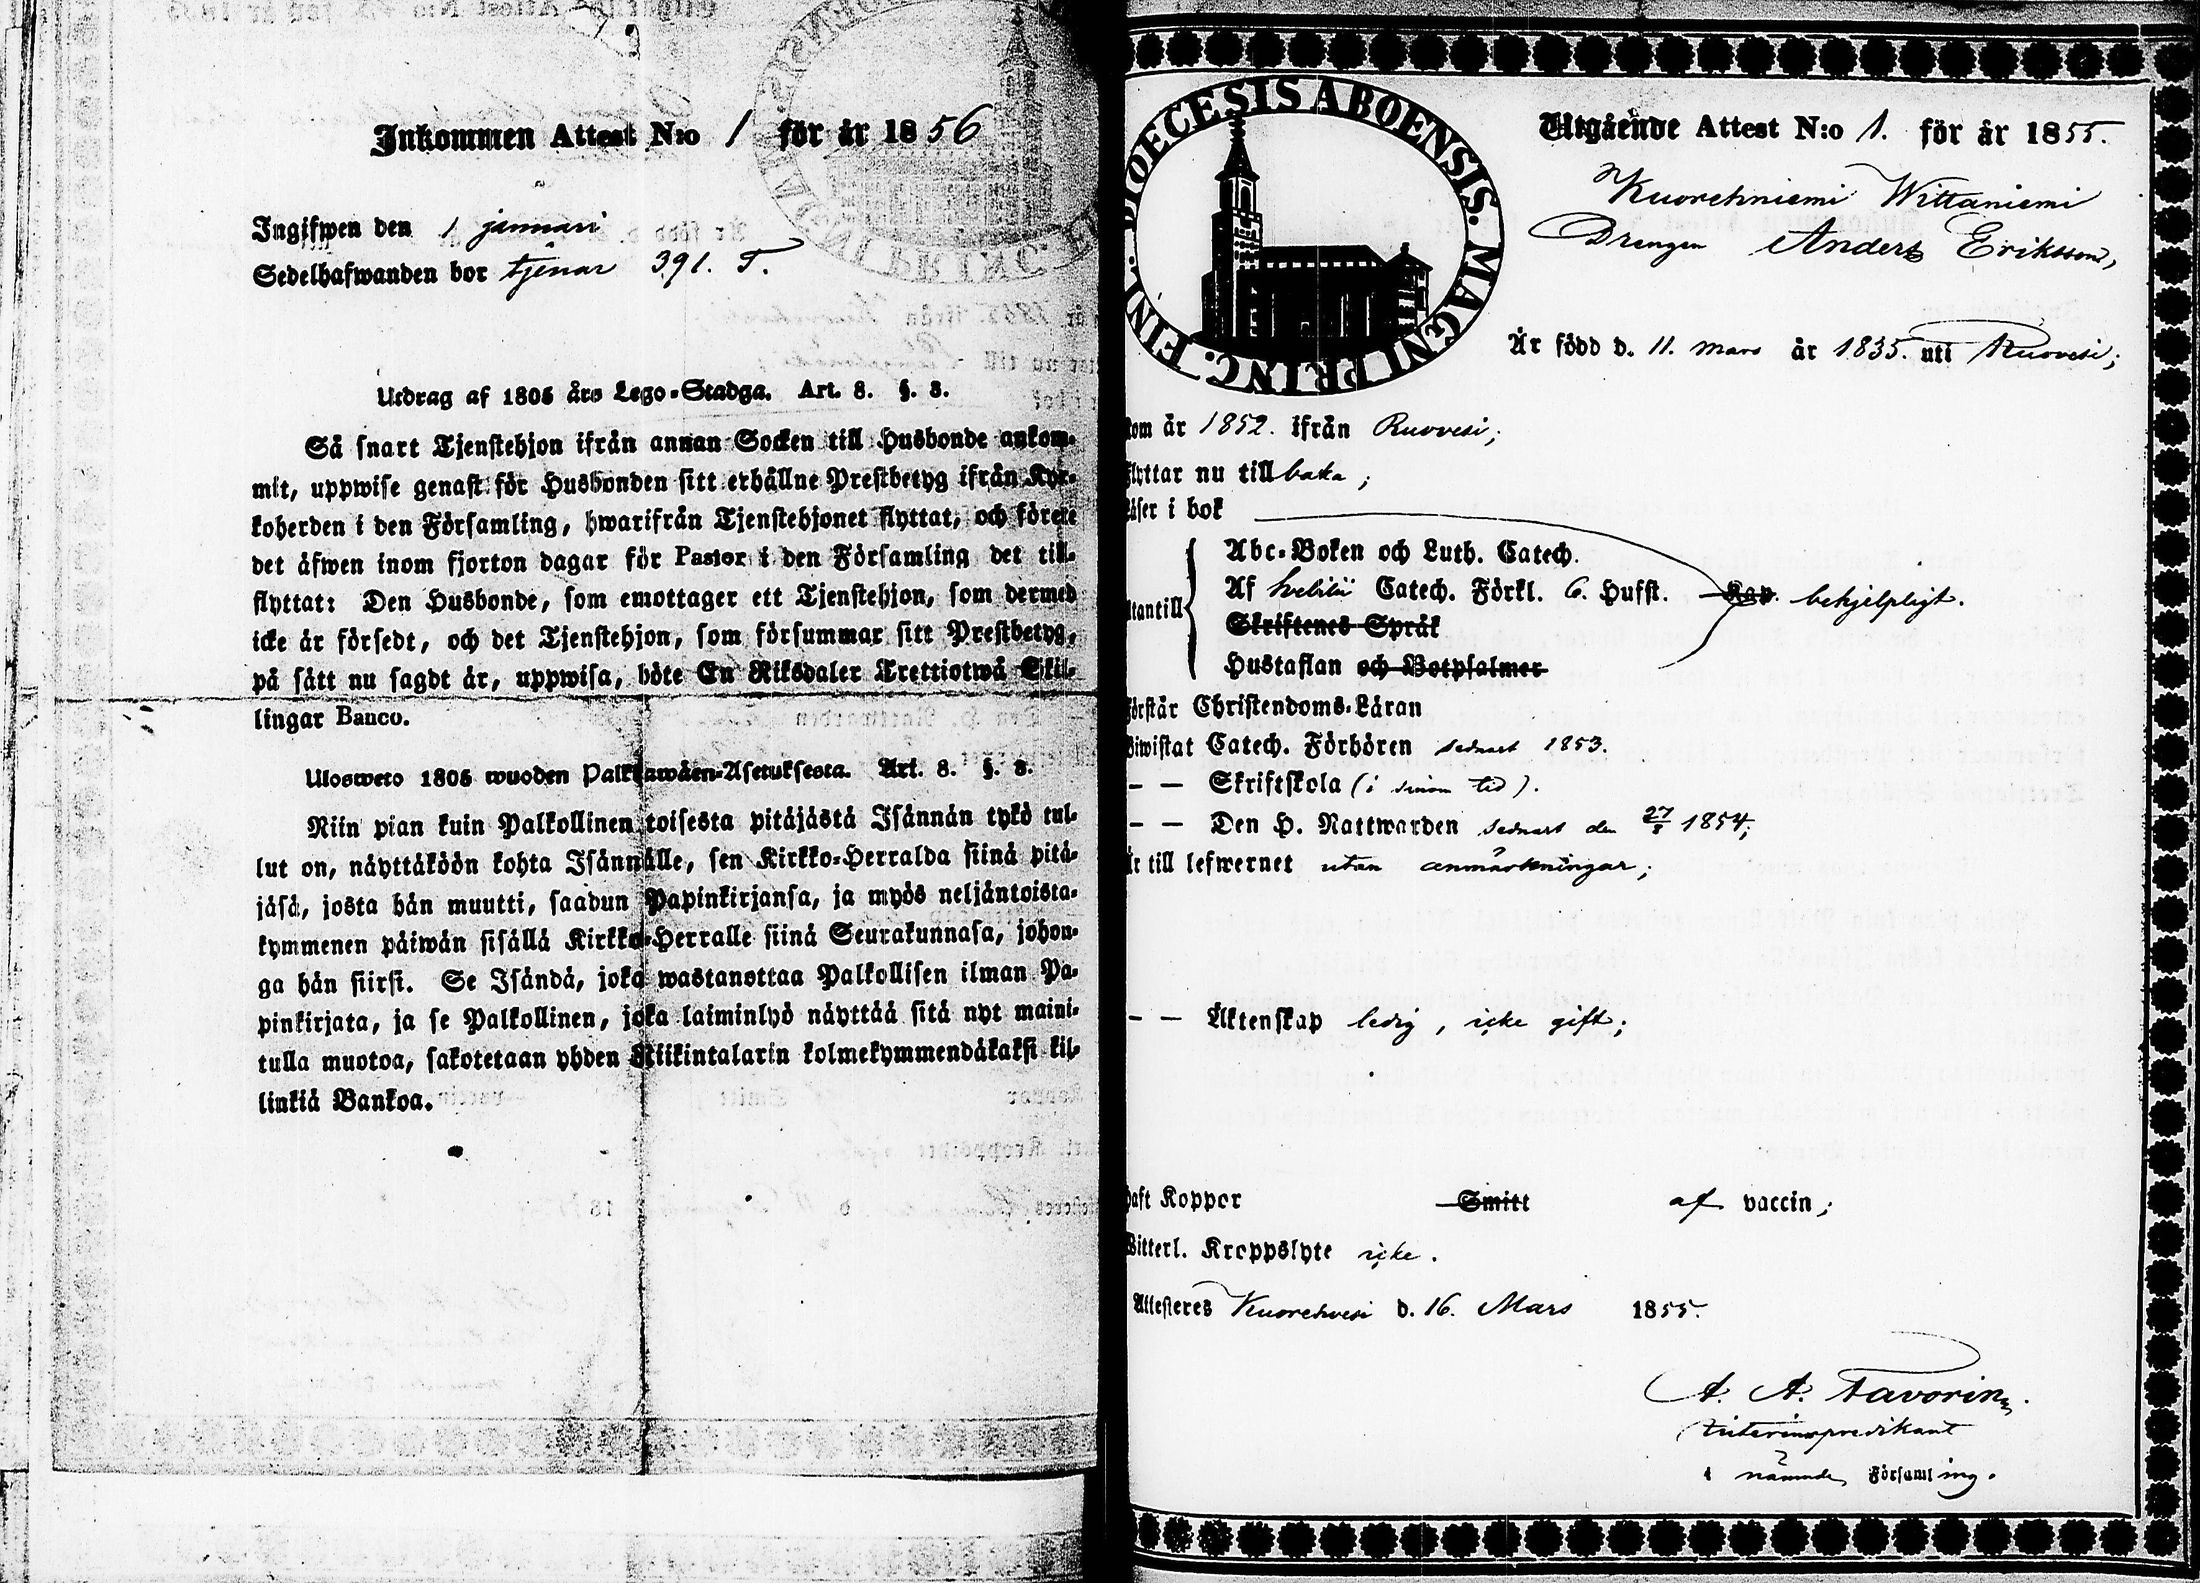 Inkommen Attest N:o 1 för år 1856
Ingifwen den 1 januari
Sedelhafwanden bor tjenar 391. T.
Utdrag af 1805 års Lego-Stadga. Art. 8. §. 3.
Så snart Tjenstehjon ifrån annan Socken till Husbonde ankom-
mit, uppwise genast för Husbonden sitt erhållne Prestbetyg ifrån Kyr-
koherden i den Församling, hwarifrån Tjenstehjonet flyttat, och förete
det äfwen inom fjorton dagar för Pastor i den Församling det till-
flyttat: Den Husbonde, som emottager ett Tjenstehjon, som dermed
icke är försedt, och det Tjenstehjon, som försummar sitt Prestbetyg,
på sätt nu sagdt är, uppwisa, böte En Riksdaler Trettiotwå Skil-
lingar Banco.
Ulosweto 1805 wuoden Palkkawäen-Asetuksesta. Art. 8. §. 3.
Niin pian kuin Palkollinen toisesta pitäjästä Isännän tykö tul-
lut on, näyttäköön kohta Isännälle, sen Kirkko-Herralda siinä pitä-
jäsä, josta hän muutti, saadun Papinkirjansa, ja myös neljäntoista-
kymmenen päiwän sisällä Kirkko-Herralle siinä Seurakunnasa, johon-
ga hän siirsi. Se Isändä, joka wastanottaa Palkollisen ilman Pa-
pinkirjata, ja se Palkollinen, joka laiminlyö näyttää sitä nyt maini-
tulla muotoa, sakotetaan yhden Riikintalarin kolmekymmendäkaksi kil-
linkiä Bankoa.
DIOECESIS ABOENSIS. MAGNI PRINC. FINL.
Utgående Attest N:o 1. för år 1855.
Kuorehniemi Wittaniemi
Drengen Anders Eriksson,
Är född d. 11. mars år 1835. uti Ruovesi;
kom år 1852. ifrån Ruovesi;
flyttar nu tillbaka;
läser i bok
Abc-Boken och Luth. Catech.
Utantill Af Svebilii Catech. Förkl. 6. Hufst. Kap. behjelpligt.
Skriftenes Språk
Hustaflan och Botpsalmer
förstår Christendoms-Läran
Biwistat Catech. Förhören sednast 1853.
— — Skriftskola (i sinom tid).
— — Den H. Nattwarden sednast den 27/8 1854;
Är till lefwernet utan anmärkningar;
— — Äktenskap ledig, icke gift;
haft Koppor Smitt af vaccin;
Witterl. Kroppslyte icke.
Attesteres Kuorehvesi d. 16. Mars 1855.
A. A. Favorin.
Interimspredikant
i nämnde Församling.